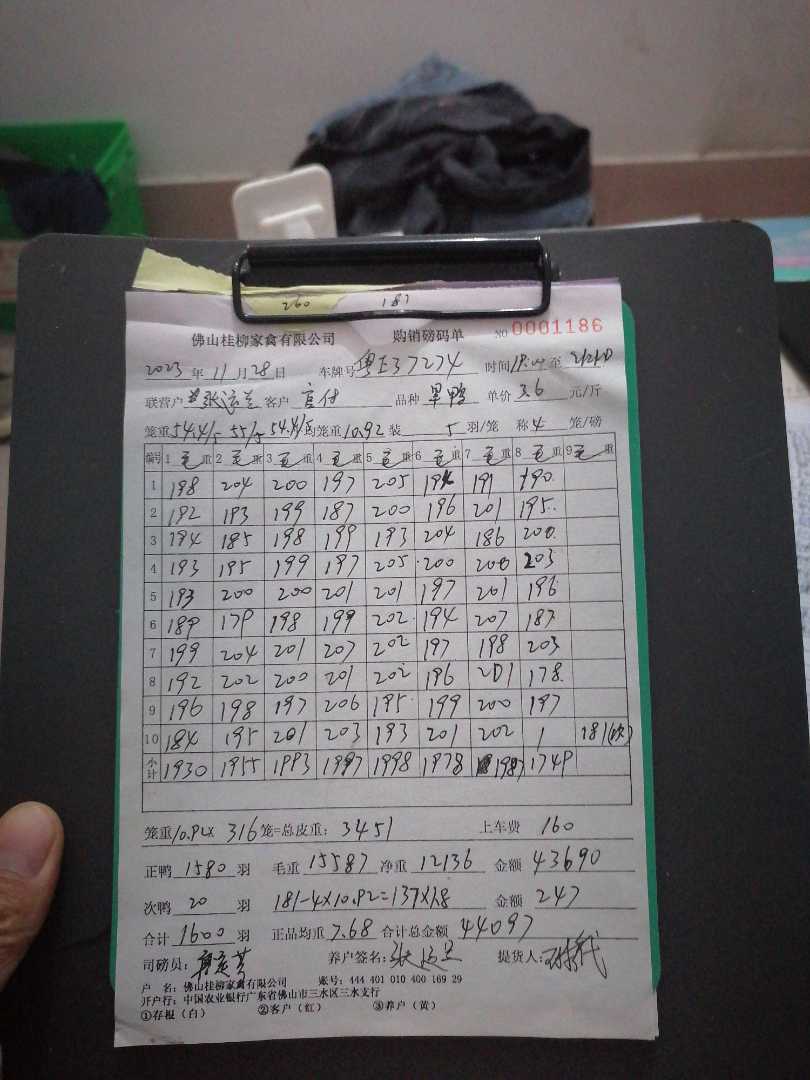 260 187
佛山桂柳家禽有限公司 购销磅码单 NO 0001186
2023 年 11 月 28 日 车牌号 粤E37274 时间 至
联营户 客户 品种 单价 3.6 元/斤
笼重 54.4/5 55/5 54.4/5 均笼重 10.92 装 5 羽/笼 称 4 笼/磅
编号 1 毛重 2 毛重 3 毛重 4 毛重 5 毛重 6 毛重 7 毛重 8 毛重 9 毛重
1 198 204 200 197 205 194 191 190
2 192 193 199 187 200 196 201 195
3 194 185 198 199 193 204 186 200
4 193 195 199 197 205 200 200 203
5 193 200 200 201 201 197 201 196
6 189 179 198 199 202 194 207 187
7 199 204 201 207 202 197 198 203
8 192 202 200 201 202 196 201 178
9 196 198 197 206 195 199 200 197
10 184 195 201 203 193 201 202 1 181(次)
小计 1930 1955 1993 1997 1998 1978 1987 1749
笼重 10.92 x 316 笼=总皮重: 3451 上车费 160
正鸭 1580 羽 毛重 15587 净重 12136 金额 43690
次鸭 20 羽 181-4x10.92=137x1.8 金额 247
合计 1600 羽 正品均重 7.68 合计总金额 44097
司磅员: 养户签名: 提货人:
户 名: 佛山桂柳家禽有限公司 账号: 444 401 010 400 169 29
开户行: 中国农业银行广东省佛山市三水区三水支行
①存根(白) ②客户(红) ③养户(黄)